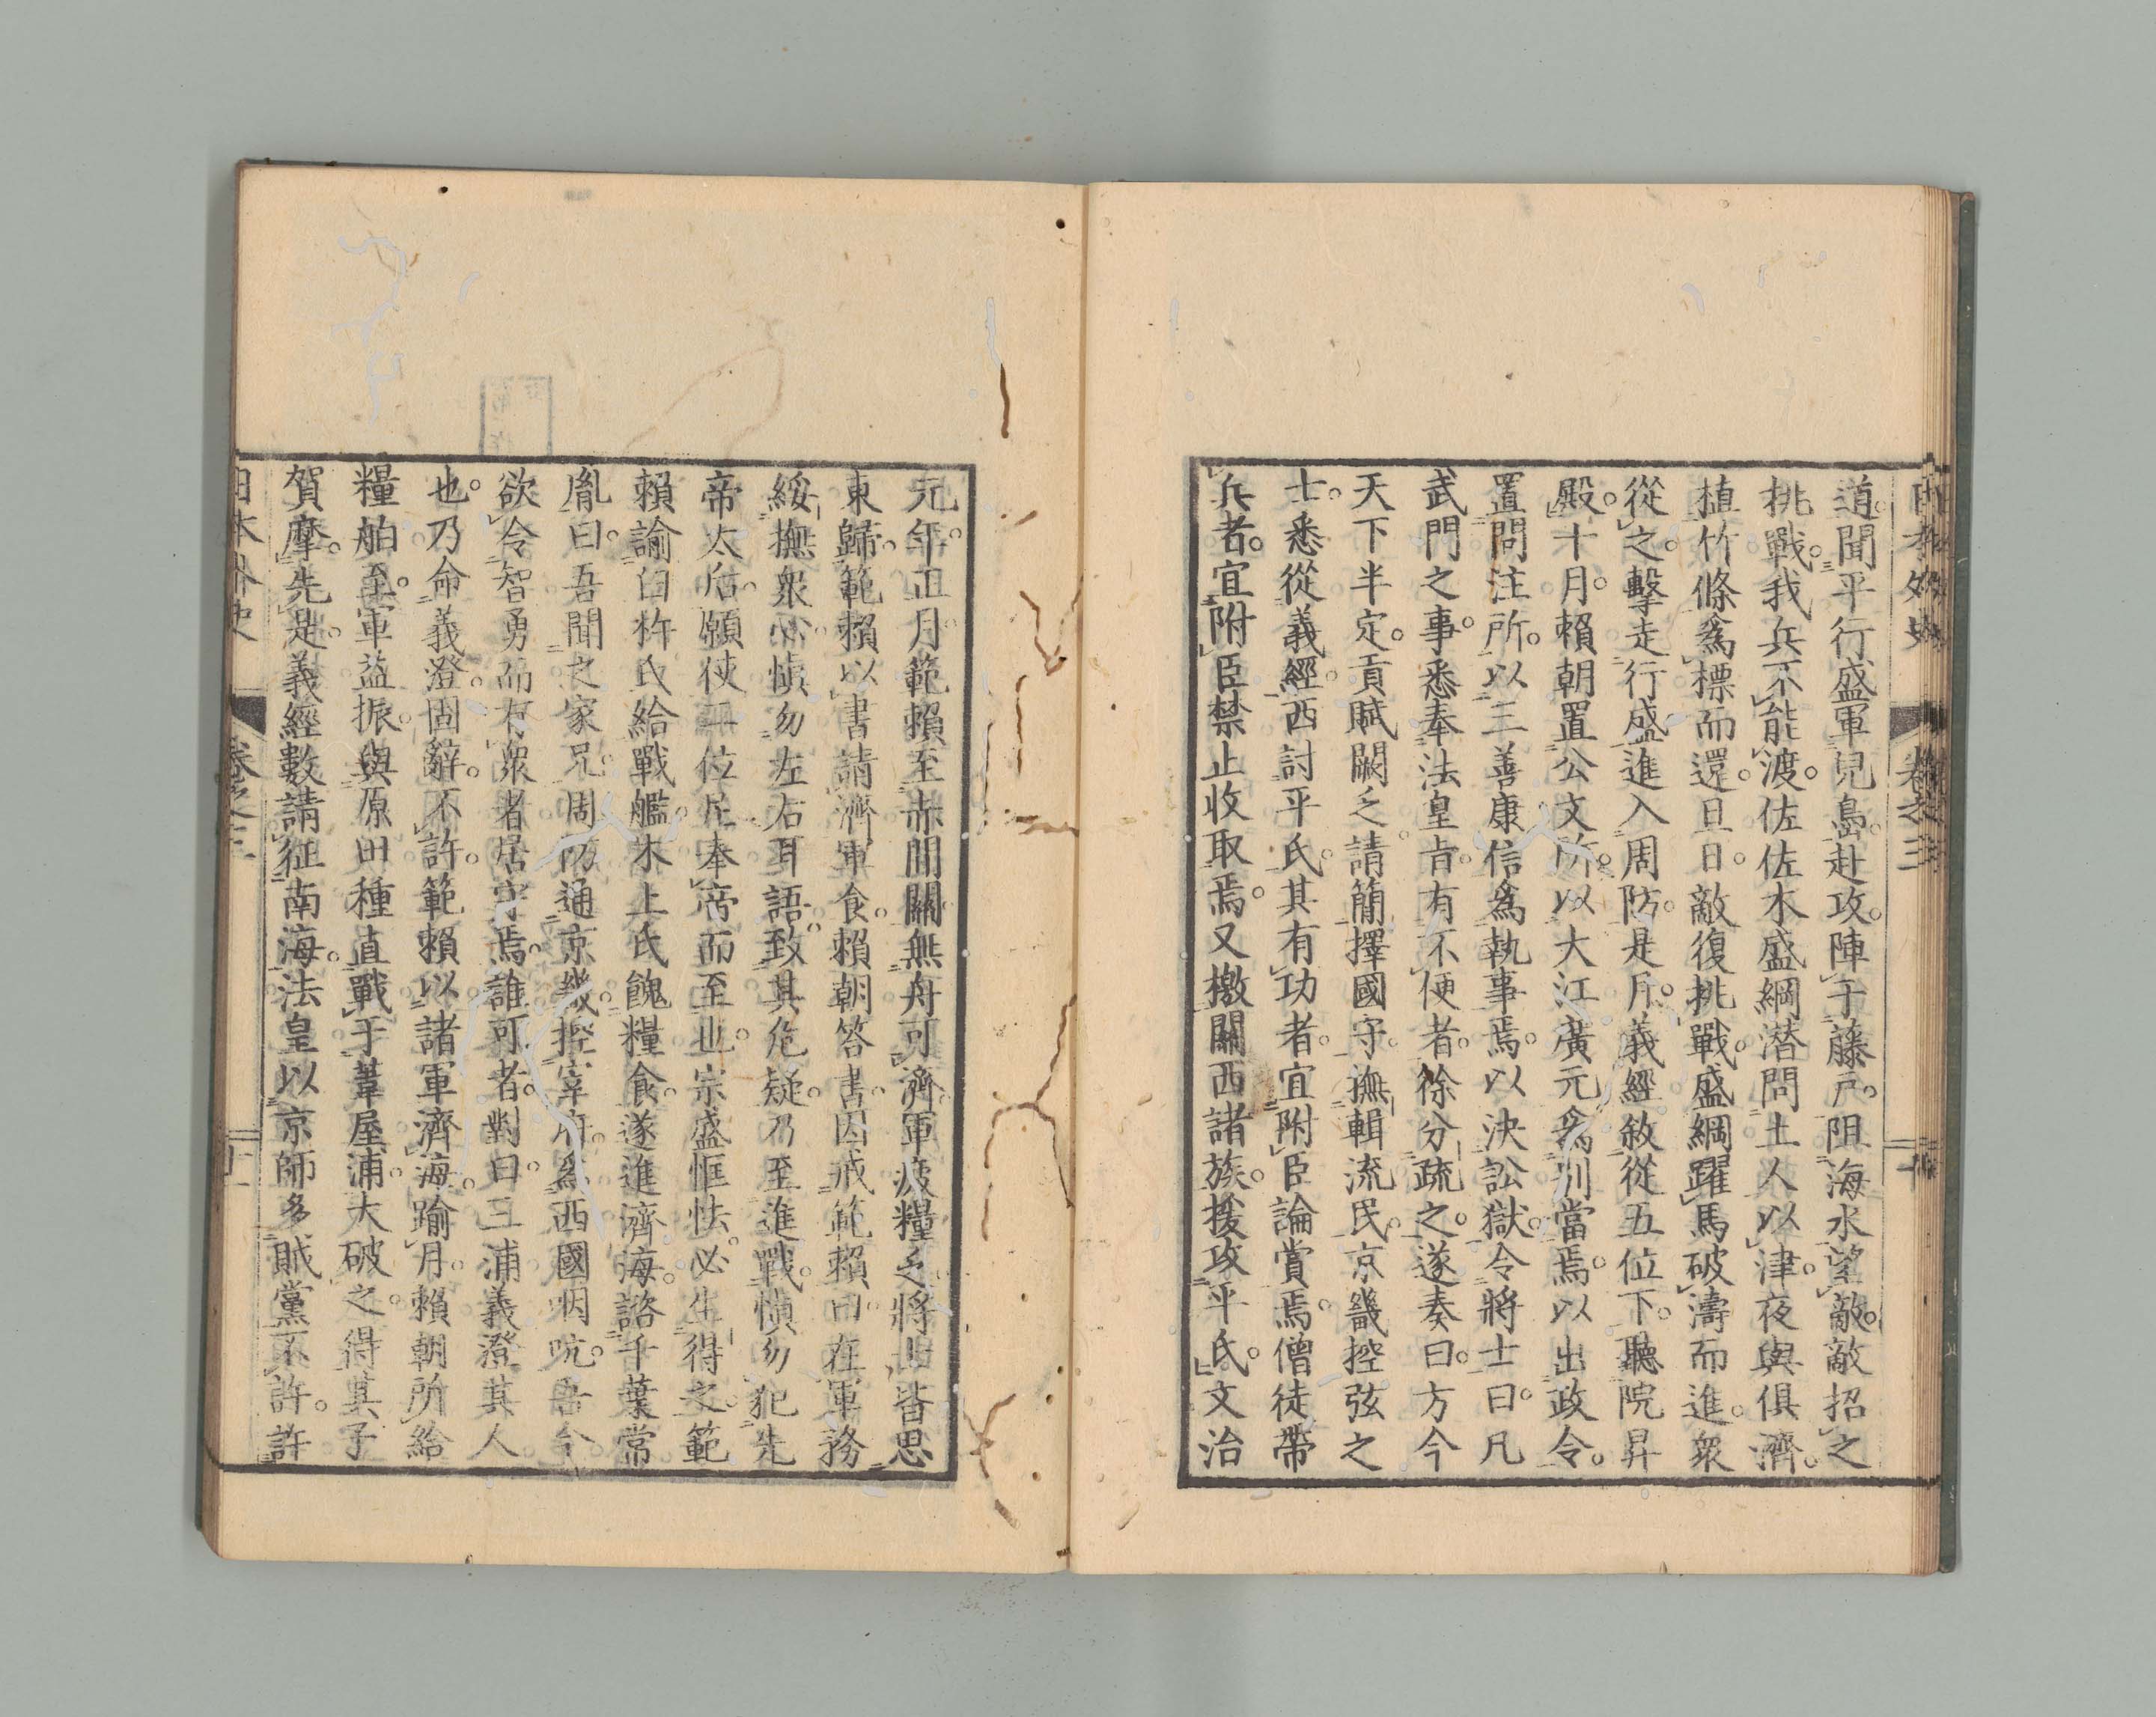 日本外史 卷之三
道。聞平行盛軍兒島。赴攻。陣于藤戸。阻海水望敵。敵招之
挑戰。我兵不能渡。佐佐木盛綱潛問土人以津。夜與俱濟。
植竹條爲標而還。旦日。敵復挑戰。盛綱躍馬破濤而進。衆
從之。擊走行盛。進入周防。是月。義經敘從五位下。聽院昇
殿。十月。賴朝置公文所。以大江廣元爲別當焉。以出政令。
置問注所。以三善康信爲執事焉。以決訟獄。令將士曰。凡
武門之事。悉奉法皇旨。有不便者。徐分疏之。遂奏曰。方今
天下半定。貢賦闕乏。請簡擇國守。撫輯流民。京畿控弦之
士。悉從義經。西討平氏。其有功者。宜附臣論賞焉。僧徒帶
兵者。宜附臣禁止收取焉。又檄關西諸族。援攻平氏。文治
元年。正月。範賴至赤間關。無舟可濟。軍疲糧乏。將士皆思
東歸。範賴以書請濟軍食。賴朝答書。因戒範賴曰。在軍務
綏撫衆心。愼勿左右耳語。致其危疑。乃至進戰。愼勿犯先
帝太后。願使二位尼奉帝而至也。宗盛恇怯。必生得之。範
賴諭臼杵氏給戰艦。木上氏餽糧食。遂進濟海。諮千葉常
胤曰。吾聞之家兄。周防通京畿。控宰府。爲西國咽吭。吾今
欲令智勇而有衆者居守焉。誰可者。對曰。三浦義澄其人
也。乃命義澄。固辭。不許。範賴以諸軍濟海。踰月。賴朝所給
糧舶至。軍益振。與原田種直戰于葦屋浦。大破之。得其子
賀摩。先是。義經數請征南海。法皇以京師多賊黨不許。許
日本外史 卷之三